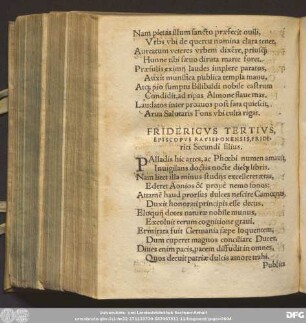 Nam pietas illum sancto præfecit ouili,
Vrbs vbi de quercu nomina clara tenet,
Auratum veteres vrbem dixere, priusq́;
Hunc tibi sæuo diruta marte fora.
Præsulis eximij laudes implere paratus,
Auxit munifica publica templa manu,
Arcq́; pio sumptu nobile castrum
Condidit, ad ripas
Laudatos inter proauos post fata quiescit,
Arua Salutaris Fons vbi culta rigat.
FRIDERICVS TERTIVS,
EPISCOPVS RATISPONENSIS, FRIDE-
rici Secundi filius.
PAlladis hic artes, ac Phœbi numen amauit,
Inuigilans doctis nocte dieq́; libris.
Nam licet illa minus studijs excelleret ætas,
Ederet Aonios & propè nemo sonos:
Attamen haud prorsus dulces nescire Camœnas
Duxit honorati principis esse decus,
Eloquij dotes naturæ nobile munus,
Excoluit rerum cognitione graui,
Ermirata fuit Germania sæpe loquentem,
Dum cuperet magnos conciliare Duces.
Diues enim pacis, pacem diffudit in omnes,
Quos decuit patriæ dulcis amore trahi,
Publica